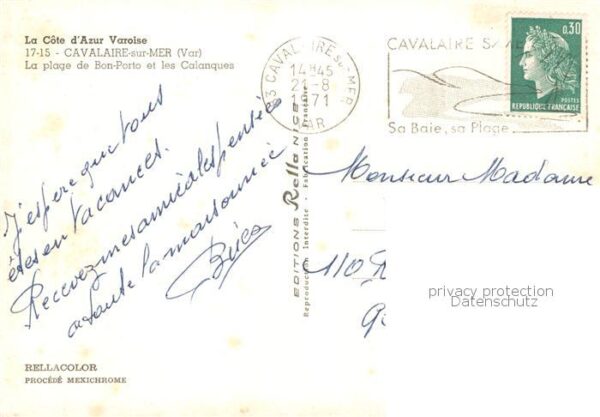 La Côte d'Azur Varoise
17-15 - CAVALAIRE-sur-MER (Var)
La plage de Bon-Porto et les Calanques
J'espère que vous
êtes en vacances.
Recevez mes amicales pensées
à toute la maisonnée
RELLACOLOR
PROCÉDÉ MEXICHROME
EDITIONS Rella NICE
Reproduction Interdite - Fabrication Française
83 CAVALAIRE sur MER
14H45
21-8
1971
VAR
CAVALAIRE S/MER
Sa Baie, sa Plage
0,30
POSTES
REPUBLIQUE FRANÇAISE
Monsieur Madame
110
privacy protection
Datenschutz